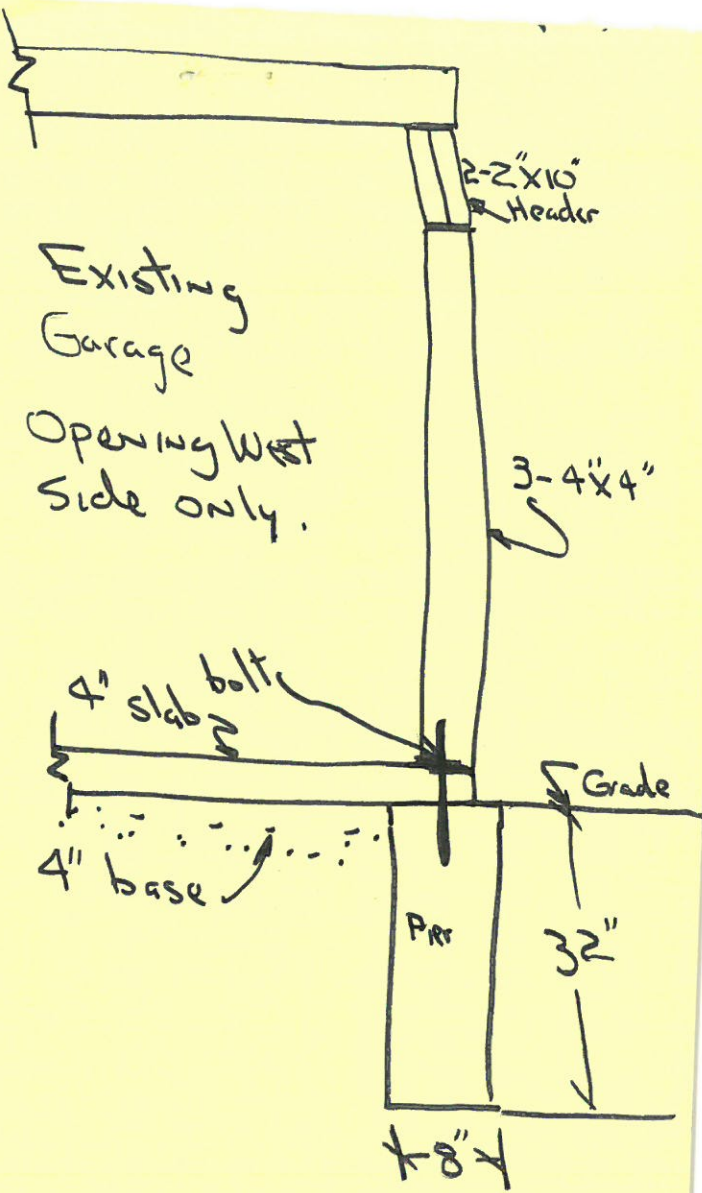 2-2"X10"
Header
Existing
Garage
Opening West
Side only.
3-4"x4"
bolt
4" slab
Grade
4" base
Pier
32"
8"